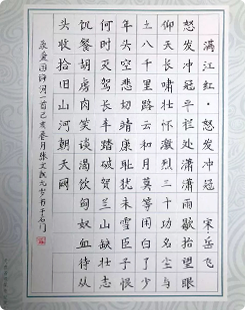 满江红·怒发冲冠 宋岳飞
怒发冲冠凭栏处潇潇雨歇抬望眼
仰天长啸壮怀激烈三十功名尘与
土八千里路云和月莫等闲白了少
年头空悲切靖康耻犹未雪臣子恨
何时灭驾长车踏破贺兰山缺壮志
饥餐胡虏肉笑谈渴饮匈奴血待从
头收拾旧山河朝天阙
录爱国诗词一首己亥春月张文书于石门